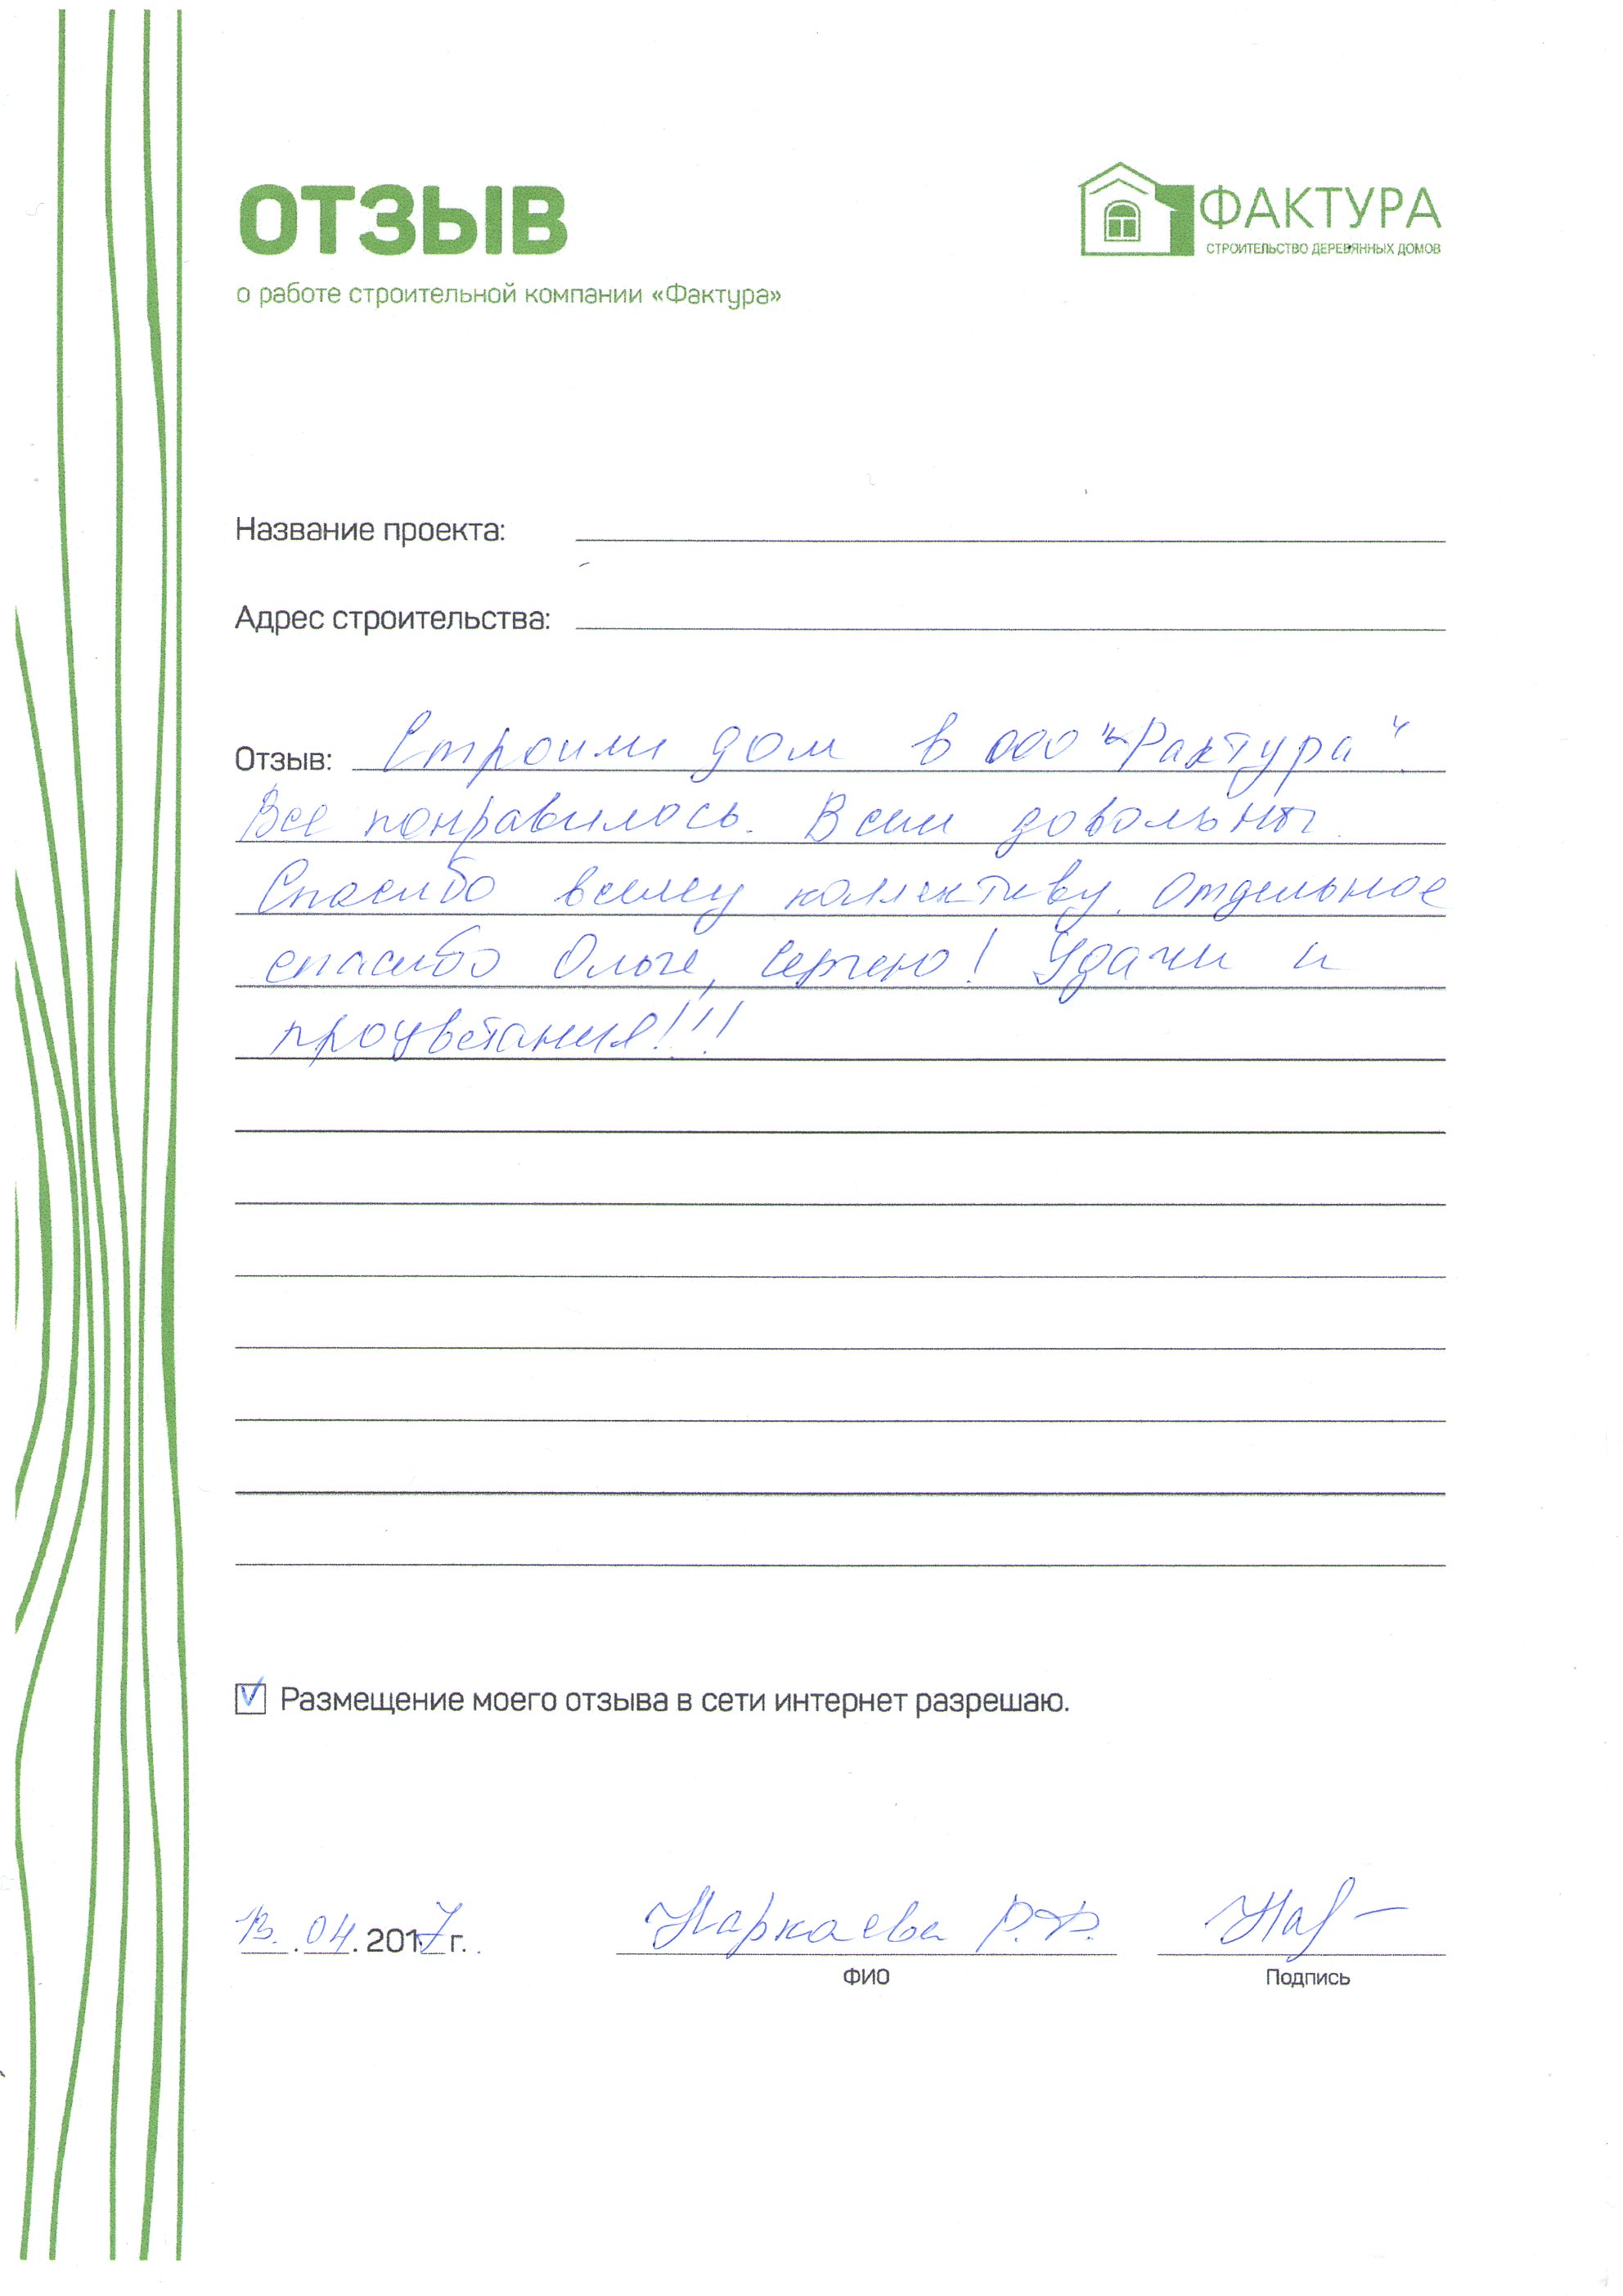 ОТЗЫВ
ФАКТУРА
СТРОИТЕЛЬСТВО ДЕРЕВЯННЫХ ДОМОВ
о работе строительной компании «Фактура»
Название проекта:
Адрес строительства:
Отзыв: Строили дом в ООО "Фактура".
Все понравилось. Всем довольны.
Спасибо всему коллективу. Отдельное
спасибо Ольге, Сергею! Удачи и
процветания!!!
Размещение моего отзыва в сети интернет разрешаю.
13.04.2017 г. Наркаева Р.Ф.
ФИО Подпись